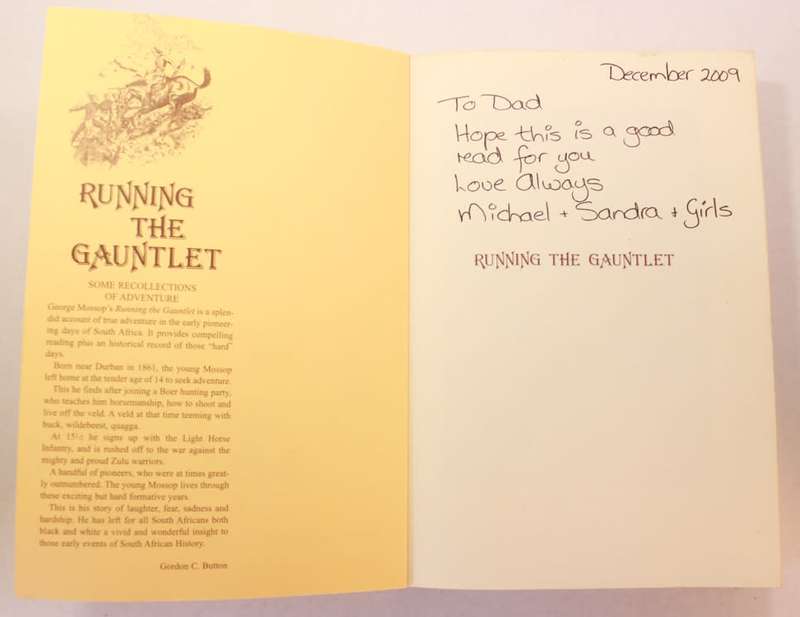 RUNNING
THE
GAUNTLET
SOME RECOLLECTIONS
OF ADVENTURE
George Mossop's Running the Gauntlet is a splen-
did account of true adventure in the early pioneer-
ing days of South Africa. It provides compelling
reading plus an historical record of those "hard"
days.
Born near Durban in 1861, the young Mossop
left home at the tender age of 14 to seek adventure.
This he finds after joining a Boer hunting party,
who teaches him horsemanship, how to shoot and
live off the veld. A veld at that time teeming with
buck, wildebeest, quagga.
At 15½ he signs up with the Light Horse
Infantry, and is rushed off to the war against the
mighty and proud Zulu warriors.
A handful of pioneers, who were at times great-
ly outnumbered. The young Mossop lives through
these exciting but hard formative years.
This is his story of laughter, fear, sadness and
hardship. He has left for all South Africans both
black and white a vivid and wonderful insight to
those early events of South African History.
Gordon C. Button
December 2009
To Dad
Hope this is a good
read for you
Love Always
Michael + Sandra + Girls
RUNNING THE GAUNTLET